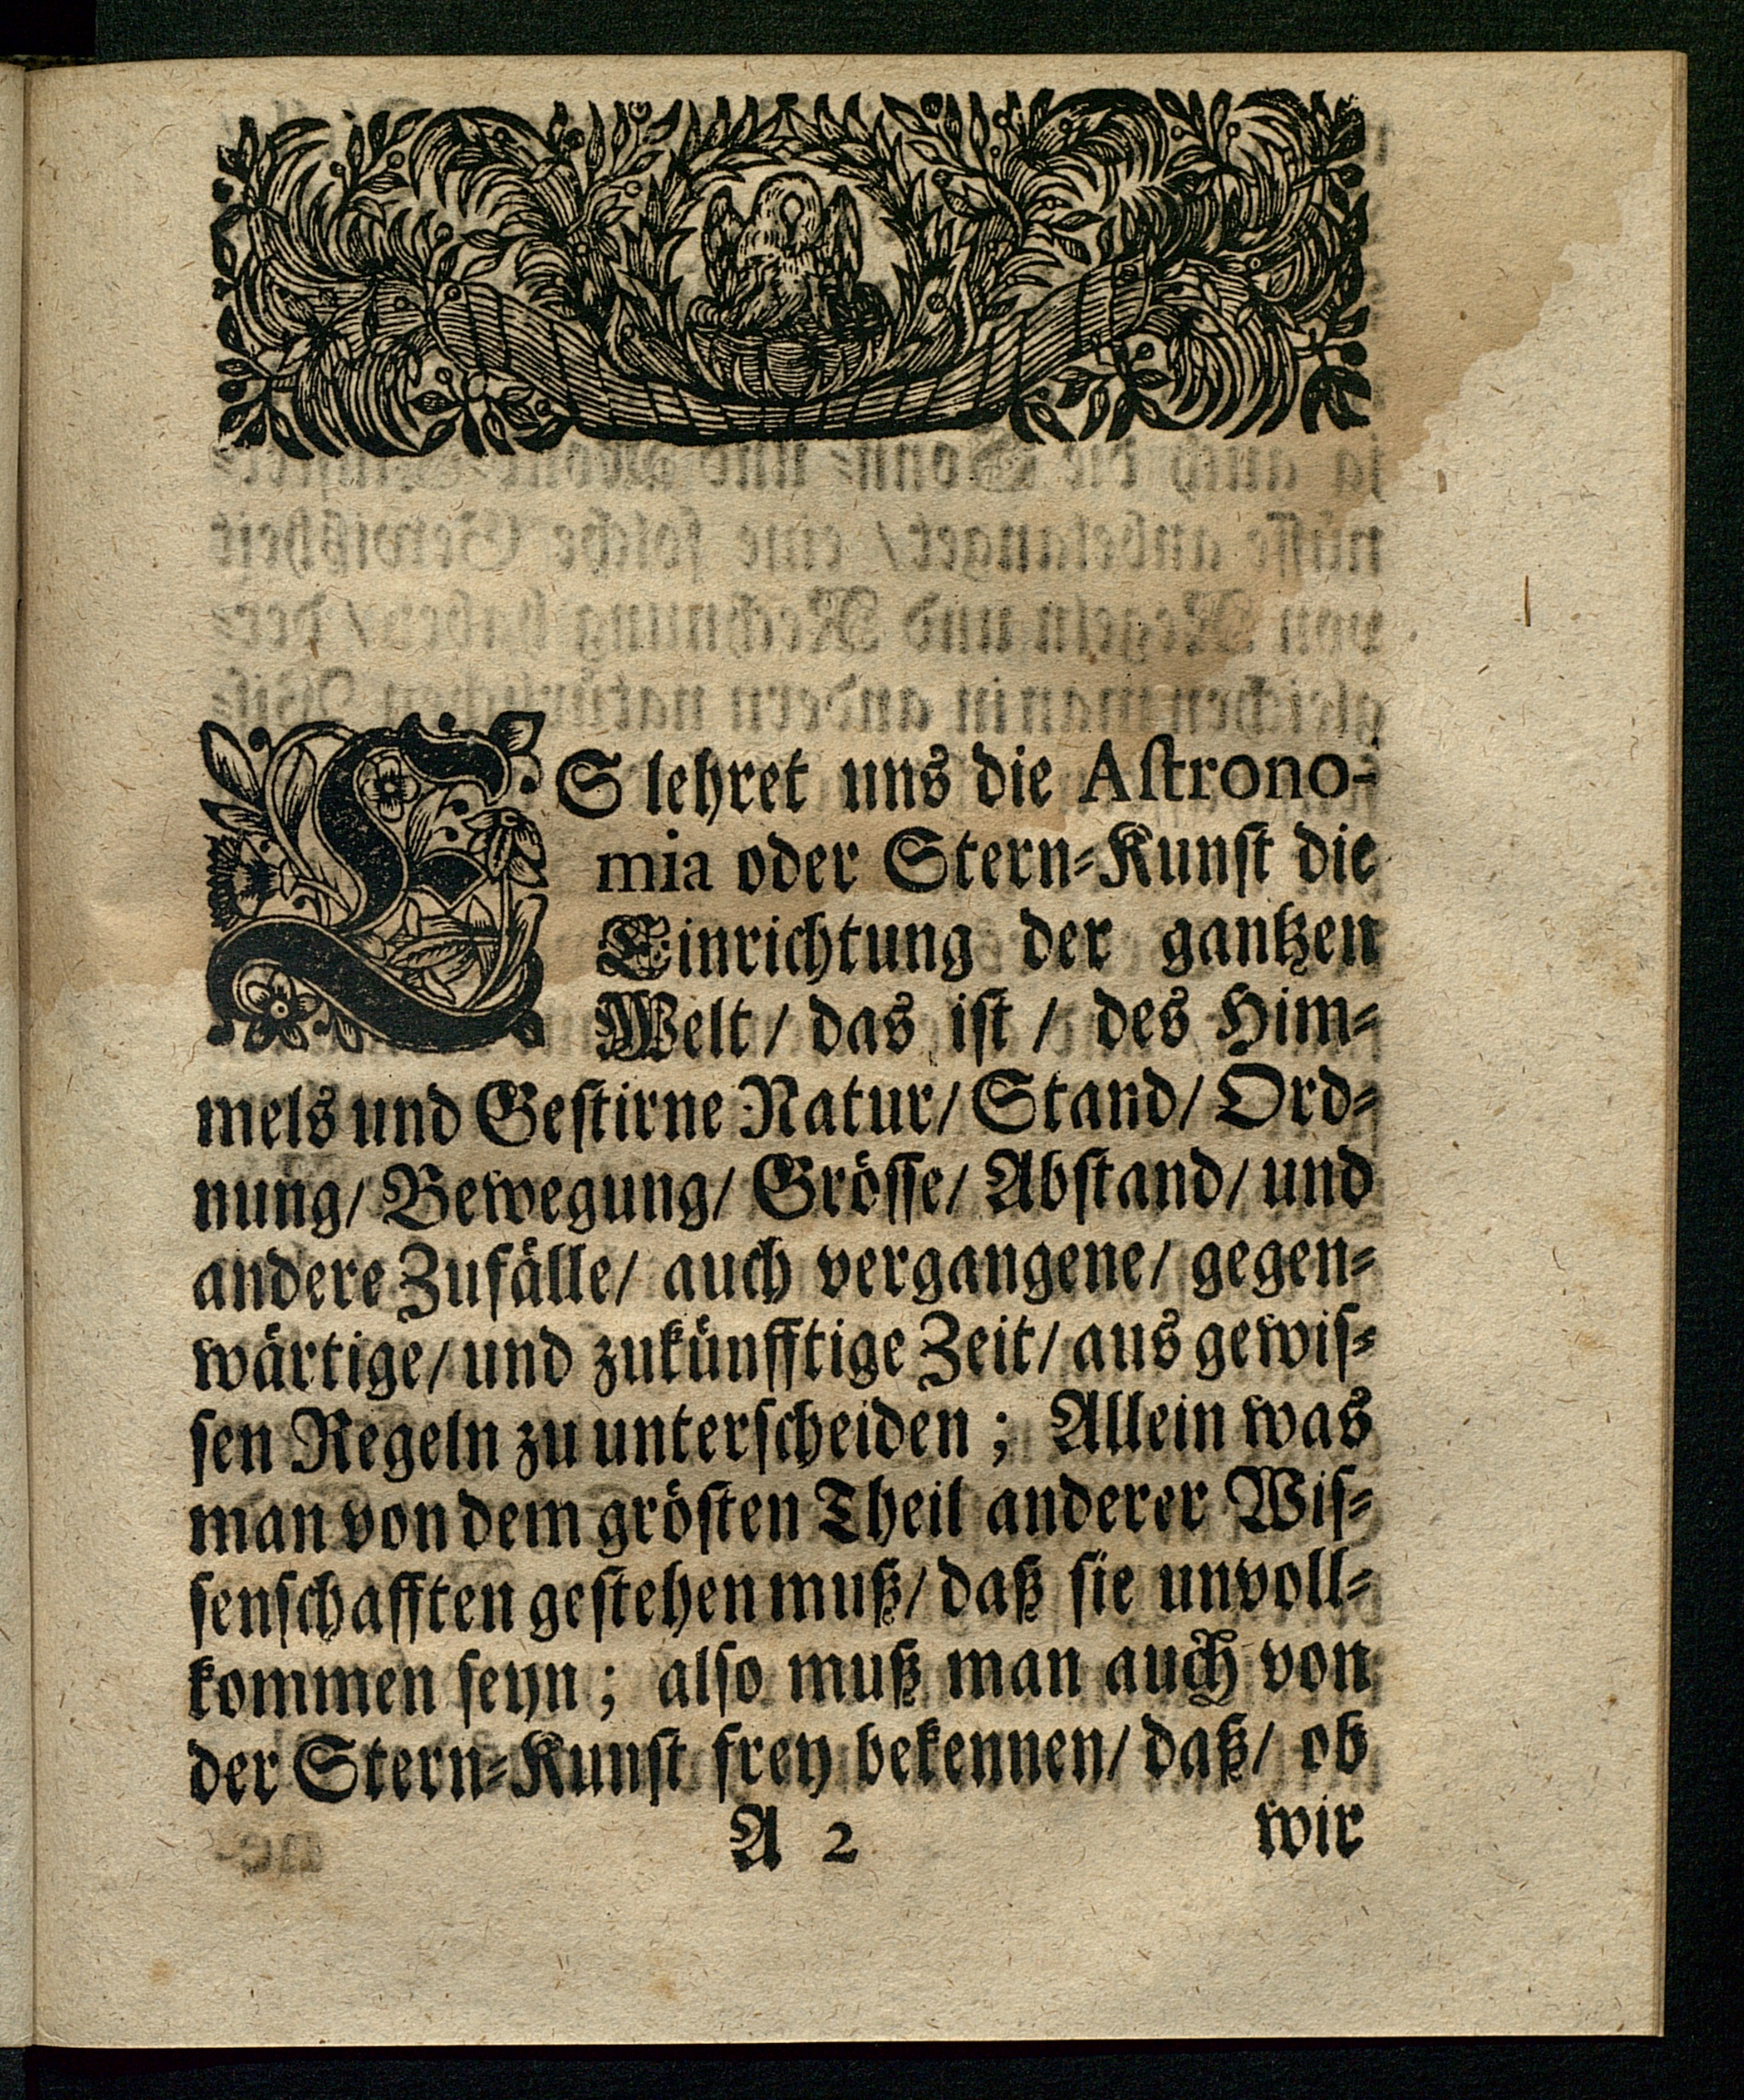 ES lehret uns die Astrono-
mia oder Stern-Kunst die
Einrichtung der gantzen
Welt / das ist / des Him-
mels und Gestirne Natur / Stand / Ord-
nung / Bewegung / Grösse / Abstand / und
andere Zufälle / auch vergangene / gegen-
wärtige / und zukünfftige Zeit / aus gewis-
sen Regeln zu unterscheiden ; Allein was
man von dem grösten Theil anderer Wis-
senschafften gestehen muß / daß sie unvoll-
kommen seyn ; also muß man auch von
der Stern-Kunst frey bekennen / daß / ob
A 2 wir